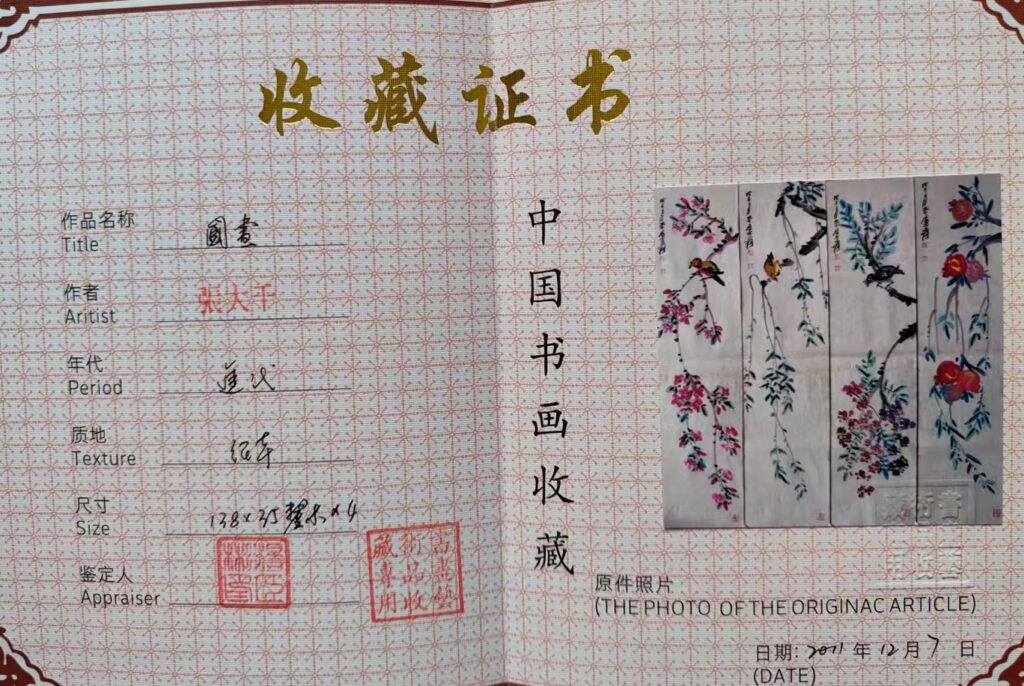 收藏证书
作品名称
Title
國畫
作者
Aritist
張大千
年代
Period
近代
质地
Texture
纸本
尺寸
Size
138×35厘米×4
鉴定人
Appraiser
藏術
專品
用收
中国书画收藏
原件照片
(THE PHOTO OF THE ORIGINAC ARTICLE)
日期: 2011 年 12 月 7 日
(DATE)